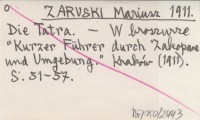 ZARUSKI Mariusz 1911.
Die Tatra. — W broszurze
"Kurzer Führer durch Zakopane
und Umgebung." Kraków (1911).
S. 31-37.